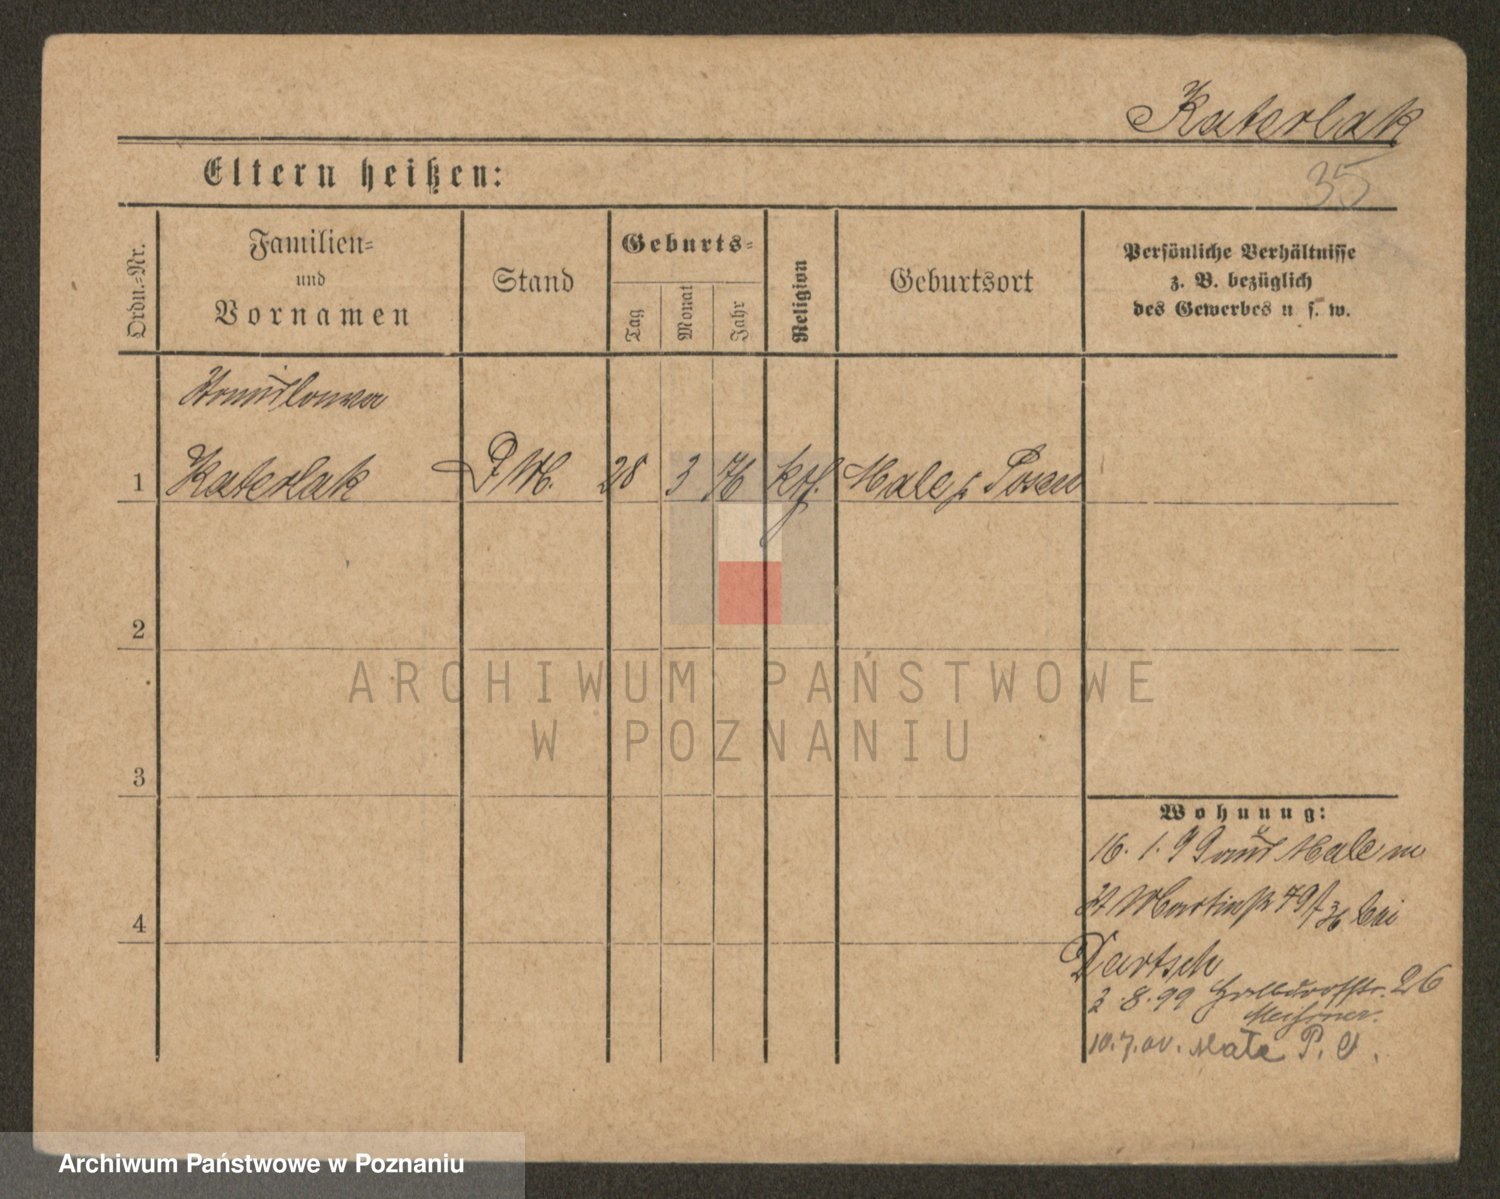 Katerlak
Eltern heißen:
35
Ordn.-Nr.
Familien-
und
Vornamen
Stand
Geburts-
Tag
Monat
Jahr
Religion
Geburtsort
Persönliche Verhältnisse
z. B. bezüglich
des Gewerbes u. s. w.
1
Katerlak
D. M. 28 3 76 kth. Male Posen
2
ARCHIWUM PAŃSTWOWE
W POZNANIU
3
Wohnung:
16. 1. 99 aus Male
St Martinstr 79 bei
4
Dartsch
2.8.99 26
10.7. Male P. O.
Archiwum Państwowe w Poznaniu